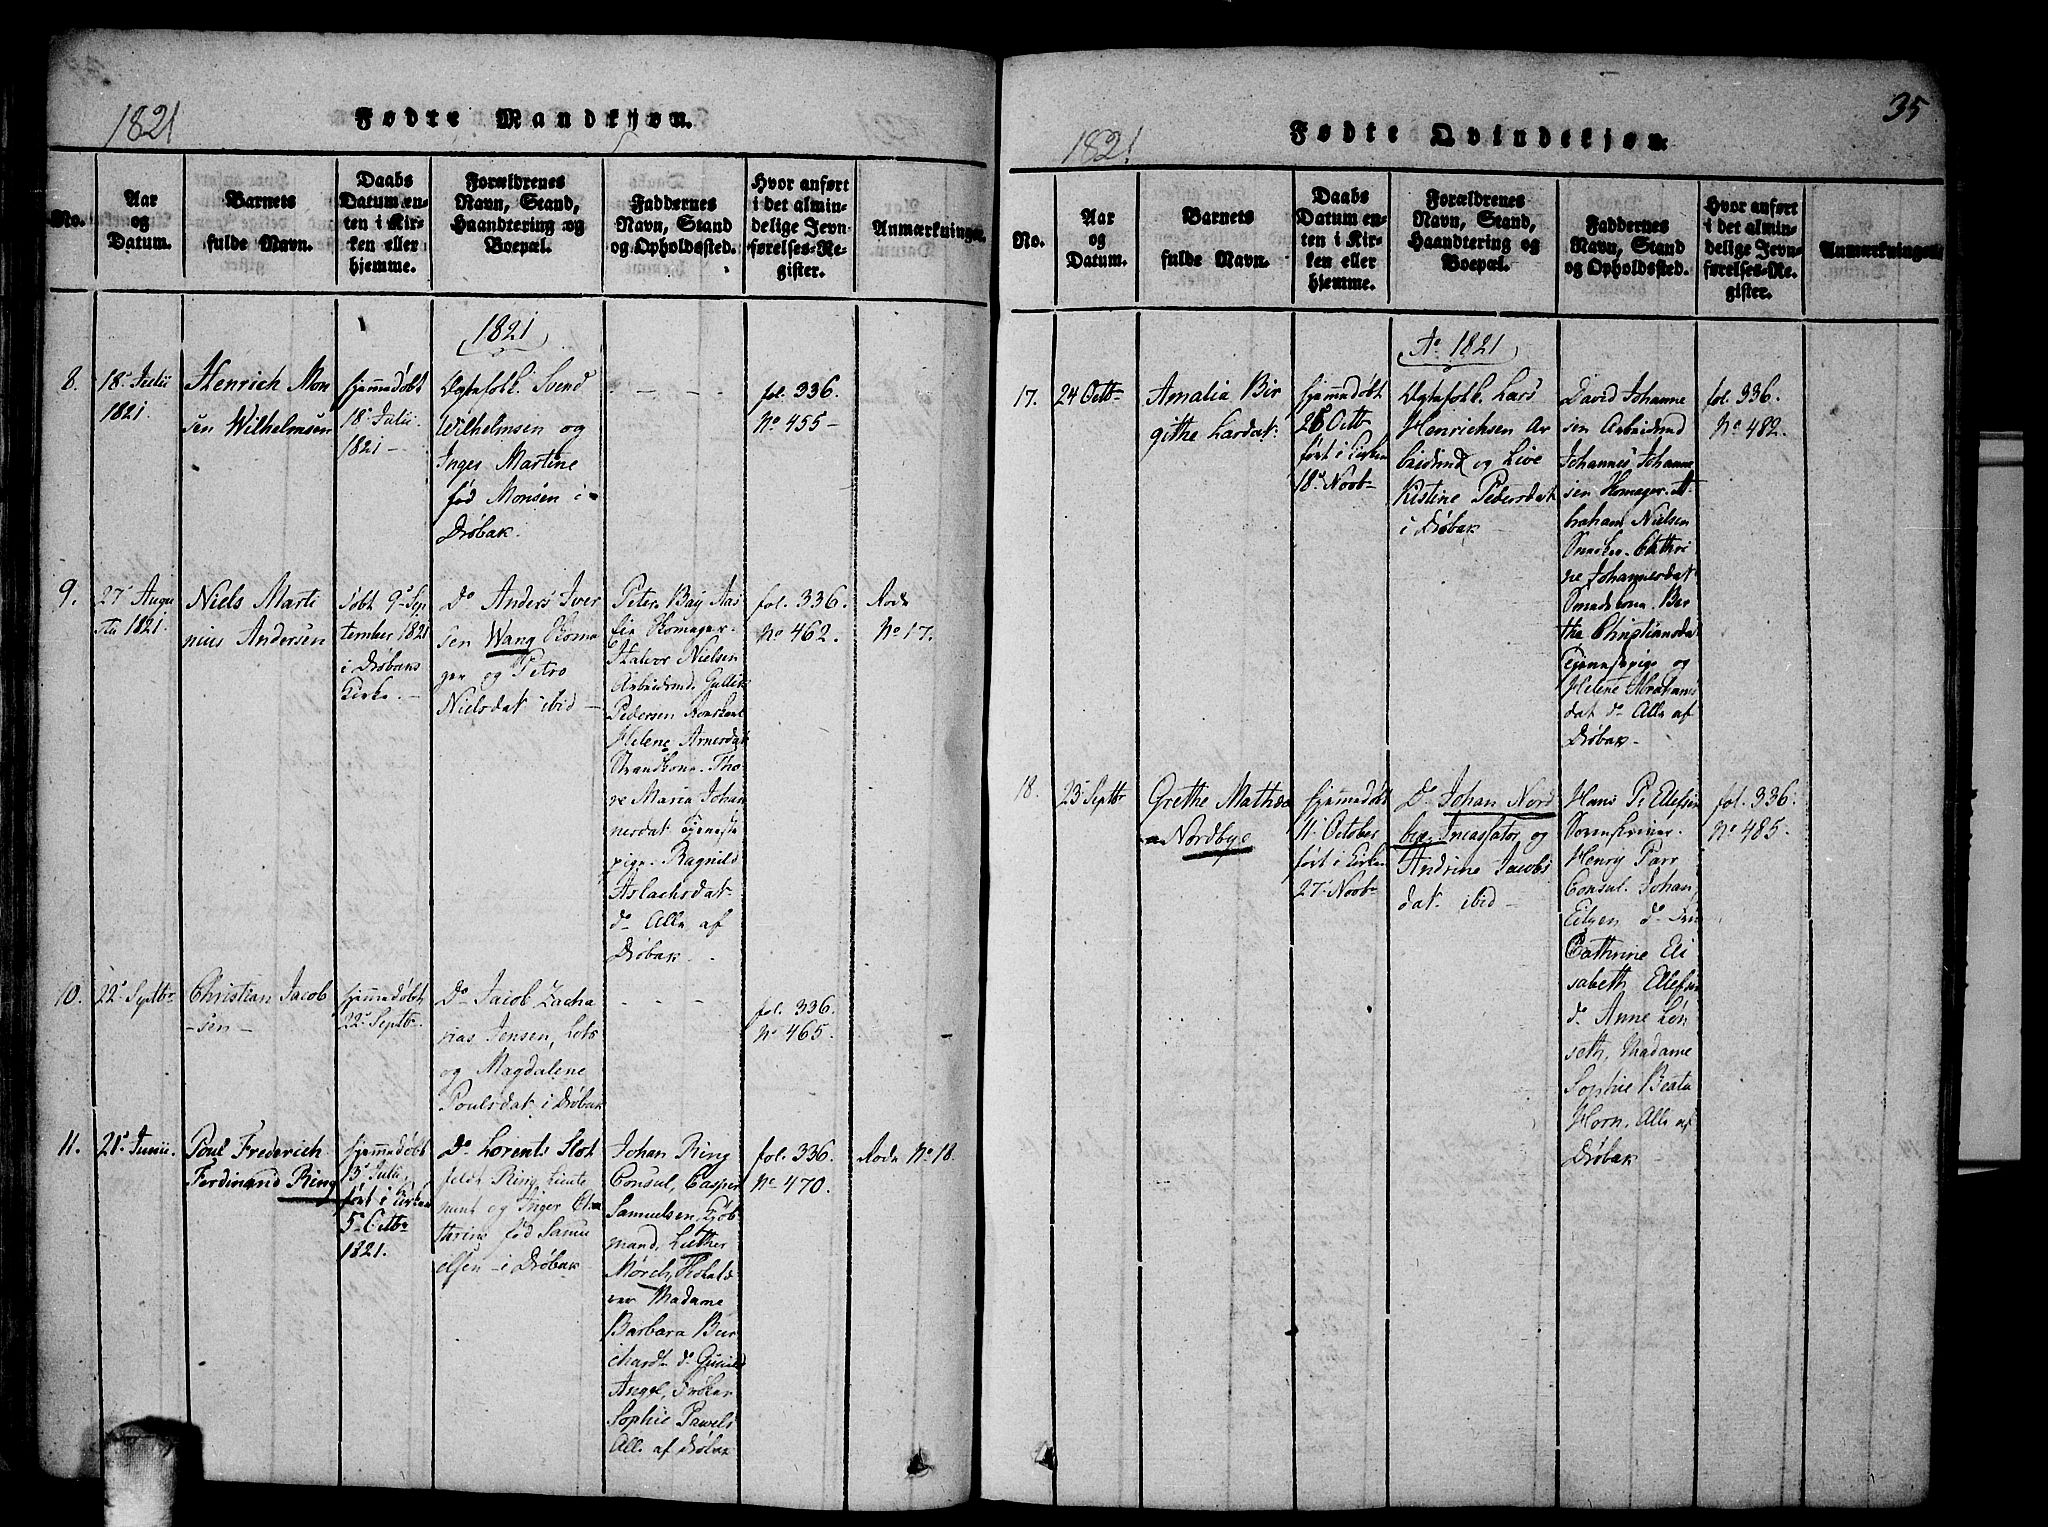 1821
Fødte Mandkjøn.
No.
Aar
og
Datum.
Barnets
fulde Navn.
Daabs
Datum en-
ten i Kir-
ken eller
hjemme.
Forældrenes
Navn, Stand,
Haandtering og
Boepæl.
Faddernes
Navn, Stand
og Opholdssted.
Hvor anført
i det almin-
delige Jevn-
førelses-Re-
gister.
Anmærkninger.
1821
8.
18 Julii
1821.
Henrich Mon
sen Wilhelmsen
hjemmedøbt
18 Julii
1821 -
Ægtefolk. Svend
Wilhelmsen og
Inger Martine
fød Monsen i
Drøbak.
- - - -
fol. 336.
No 455 -
9.
27 Augu
sti 1821.
Niels Marti
nius Andersen
døbt 9 Sep
tember 1821
i Drøbaks
Kirke. -
Do Anders Iver
sen Wang Skoma
ger og Petro
Nielsdat ibid -
Peter Bay Aas
Skomager.
Halvor Nielsen
Arbeidsmd. Gullik
Pedersen Konstabel
Helene Arnesdat
Strandkone. Tho
re Maria Johan
nesdat tjeneste
pige. Ragnild
Aslachsdat
do Alle af
Drøbak -
fol. 336.
No 462.
Rode
No 17.
10.
22 Septbr
Christian Jacob
- sen -
hjemmedøbt
22 Septbr.
Do Jacob Zacha
rias Jensen, Lots
og Magdalene
Poulsdat i Drøbak
- - - -
fol. 336.
No 465.
11.
21 Junii.
Poul Frederich
Ferdinand Ring
hjemmedøbt
13 Julii,
ført i Kirken
5 Octbr
1821.
Do Lorents Slot
feldt Ring, Lieute
nant og Inger Ca
tharina fød Samu
elsen - i Drøbak
Johan Ring
Consul, Casper
Samuelsen, Kjøb
mand, Luther
Mørch,
Madame
Barbara Bur
chardt do Gunild
Angel, Frøken
Sophie Pawels
Alle af Drøbak
fol. 336.
No 470.
Rode No 18.
35
1821
Fødte Qvindekjøn.
No.
Aar
og
Datum.
Barnets
fulde Navn.
Daabs
Datum en-
ten i Kir-
ken eller
hjemme.
Forældrenes
Navn, Stand,
Haandtering og
Boepæl.
Faddernes
Navn, Stand
og Opholdssted.
Hvor anført
i det almin-
delige Jevn-
førelses-Re-
gister.
Anmærkninger.
Ao 1821
17.
24 Octbr
Amalia Bir
githe Larsdat.
hjemmedøbt
26 Octb
ført i Kirken
18 Novb
Ægtefolk. Lars
Henrichsen Ar
beidsmd og Live
Kistine Pedersdat
i Drøbak -
David Johanne
sen Arbeidsmd
Johannes Johanne
sen Skomager. A
braham Nielsen
Snecker. Cathri
ne Johannesdat
Smedskone. Ber
the Christiansdat
Tjenestepige og
Helene Abrahams
dat do Alle af
Drøbak -
fol. 336.
No 482.
18.
23 Septbr
Grethe Mathea
Nordbye
hjemmedøbt
11 October
ført i Kirken
27 Novb
Do Johan Nord
bye Incassator og
Andrine Jacobs
dat ibid -
Hans P. Ellefsen
Sorenskriver.
Henry Parr
Consul. Johan
do
Cathrine Eli
sabeth Ellefsen
do Anne Løn
seth, Madame
Sophie Beata
Horn, Alle af
Drøbak -
fol. 336.
No 485.